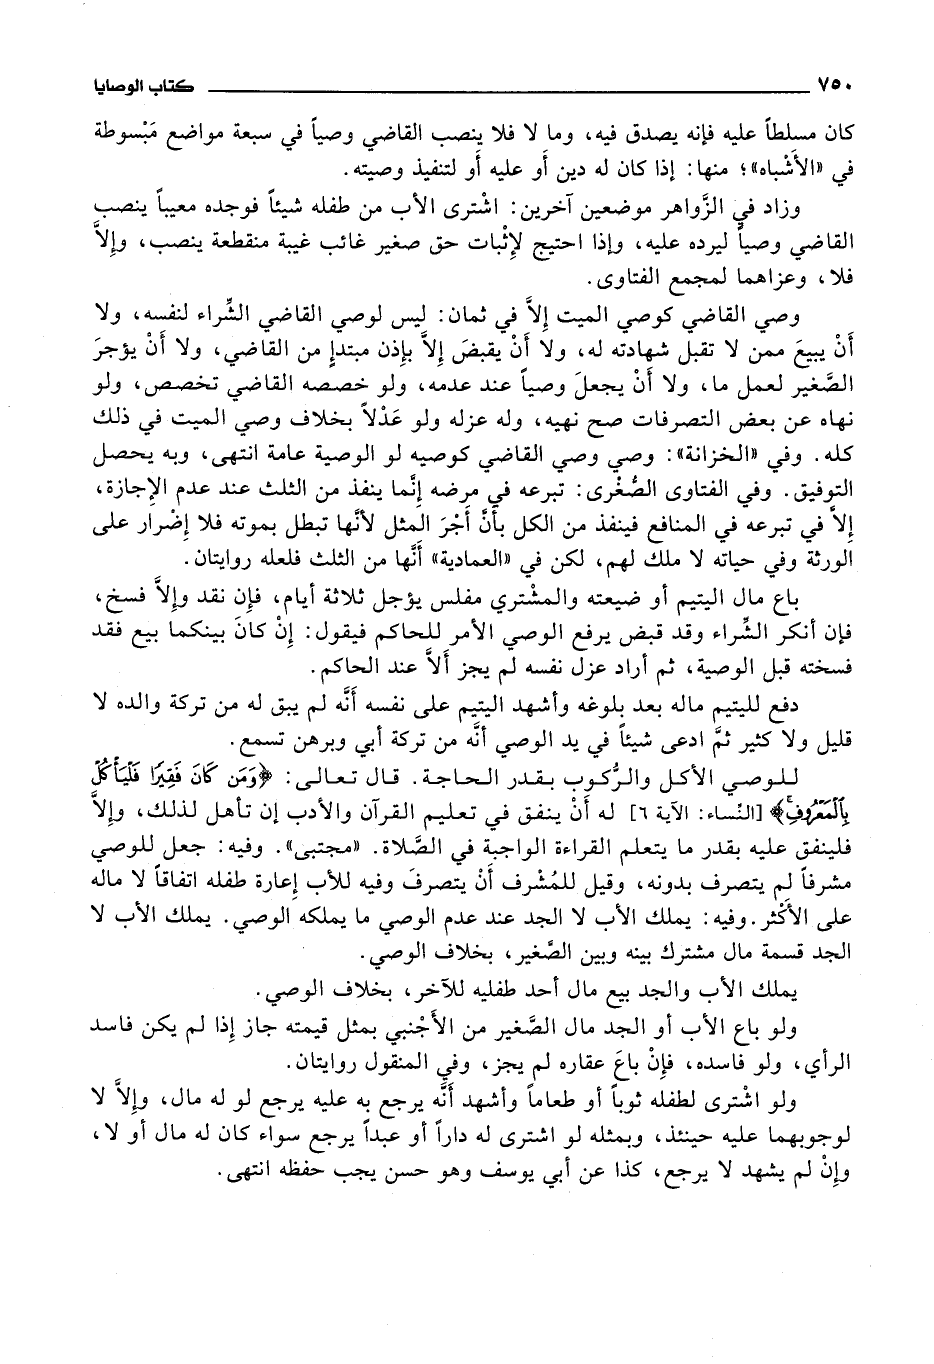 ٧٥٠ كتاب الوصايا
كان مسلطاً عليه فإنه يصدق فيه، وما لا فلا ينصب القاضي وصياً في سبعة مواضع مَبْسوطة
في «الأَشْباه»؛ منها: إذا كان له دين أَو عليه أَو لتنفيذ وصيته.
وزاد في الزَّواهر موضعين آخرين: اشْترى الأب من طفله شيئاً فوجده معيباً ينصب
القاضي وصياً ليرده عليه، وإذا احتيج لإِثْبات حق صغير غائب غيبة منقطعة ينصب، وإِلاَّ
فلا، وعزاهما لمجمع الفتاوى.
وصي القاضي كوصي الميت إِلاَّ في ثمان: ليس لوصي القاضي الشِّراء لنفسه، ولا
أَنْ يبيعَ ممن لا تقبل شهادته له، ولا أَنْ يقبضَ إِلاَّ بإِذن مبتدإِ من القاضي، ولا أَنْ يؤجرَ
الصَّغير لعمل ما، ولا أَنْ يجعلَ وصياً عند عدمه، ولو خصصه القاضي تخصص، ولو
نهاه عن بعض التصرفات صح نهيه، وله عزله ولو عَدْلاً بخلاف وصي الميت في ذلك
كله. وفي «الخزانة»: وصي وصي القاضي كوصيه لو الوصية عامة انتهى، وبه يحصل
التوفيق. وفي الفتاوى الصُّغْرى: تبرعه في مرضه إِنَّما ينفذ من الثلث عند عدم الإجازة،
إِلاَّ في تبرعه في المنافع فينفذ من الكل بأَنَّ أَجْرَ المثل لأنَّها تبطل بموته فلا إِضْرار على
الورثة وفي حياته لا ملك لهم، لكن في «العمادية» أَنَّها من الثلث فلعله روايتان.
باع مال اليتيم أو ضيعته والمشتري مفلس يؤجل ثلاثة أيام، فإِن نقد وإِلاَّ فسخ،
فإن أنكر الشِّراء وقد قبض يرفع الوصي الأمر للحاكم فيقول: إِنْ كانَ بينكما بيع فقد
فسخته قبل الوصية، ثم أراد عزل نفسه لم يجز أَلاَّ عند الحاكم.
دفع لليتيم ماله بعد بلوغه وأشهد اليتيم على نفسه أَنَّه لم يبق له من تركة والده لا
قليل ولا كثير ثمَّ ادعى شيئاً في يد الوصي أنَّه من تركة أبي وبرهن تسمع.
للوصي الأكل والرُّكوب بقدر الحاجة. قال تعالى: ﴿وَمَن كَانَ فَقِيرًا فَلْيَأْكُلْ
بِٱلْمَعْرُوفِ﴾ [النِّساء: الآية ٦] له أَنْ ينفق في تعليم القرآن والأدب إن تأهل لذلك، وإِلاَّ
فلينفق عليه بقدر ما يتعلم القراءة الواجبة في الصَّلاة. «مجتبى». وفيه: جعل للوصي
مشرفاً لم يتصرف بدونه، وقيل للمُشْرف أَنْ يتصرفَ وفيه للأب إعارة طفله اتفاقاً لا ماله
على الأَكْثر. وفيه: يملك الأب لا الجد عند عدم الوصي ما يملكه الوصي. يملك الأب لا
الجد قسمة مال مشترك بينه وبين الصَّغير، بخلاف الوصي.
يملك الأب والجد بيع مال أحد طفليه للآخر، بخلاف الوصي.
ولو باع الأب أو الجد مال الصَّغير من الأَجْنبي بمثل قيمته جاز إِذا لم يكن فاسد
الرأي، ولو فاسده، فإِنْ باعَ عقاره لم يجز، وفي المنقول روايتان.
ولو اشْترى لطفله ثوباً أو طعاماً وأشهد أَنَّه يرجع به عليه يرجع لو له مال، وإِلاَّ لا
لوجوبهما عليه حينئذ، وبمثله لو اشترى له داراً أو عبداً يرجع سواء كان له مال أو لا،
وإِنْ لم يشهد لا يرجع، كذا عن أبي يوسف وهو حسن يجب حفظه انتهى.